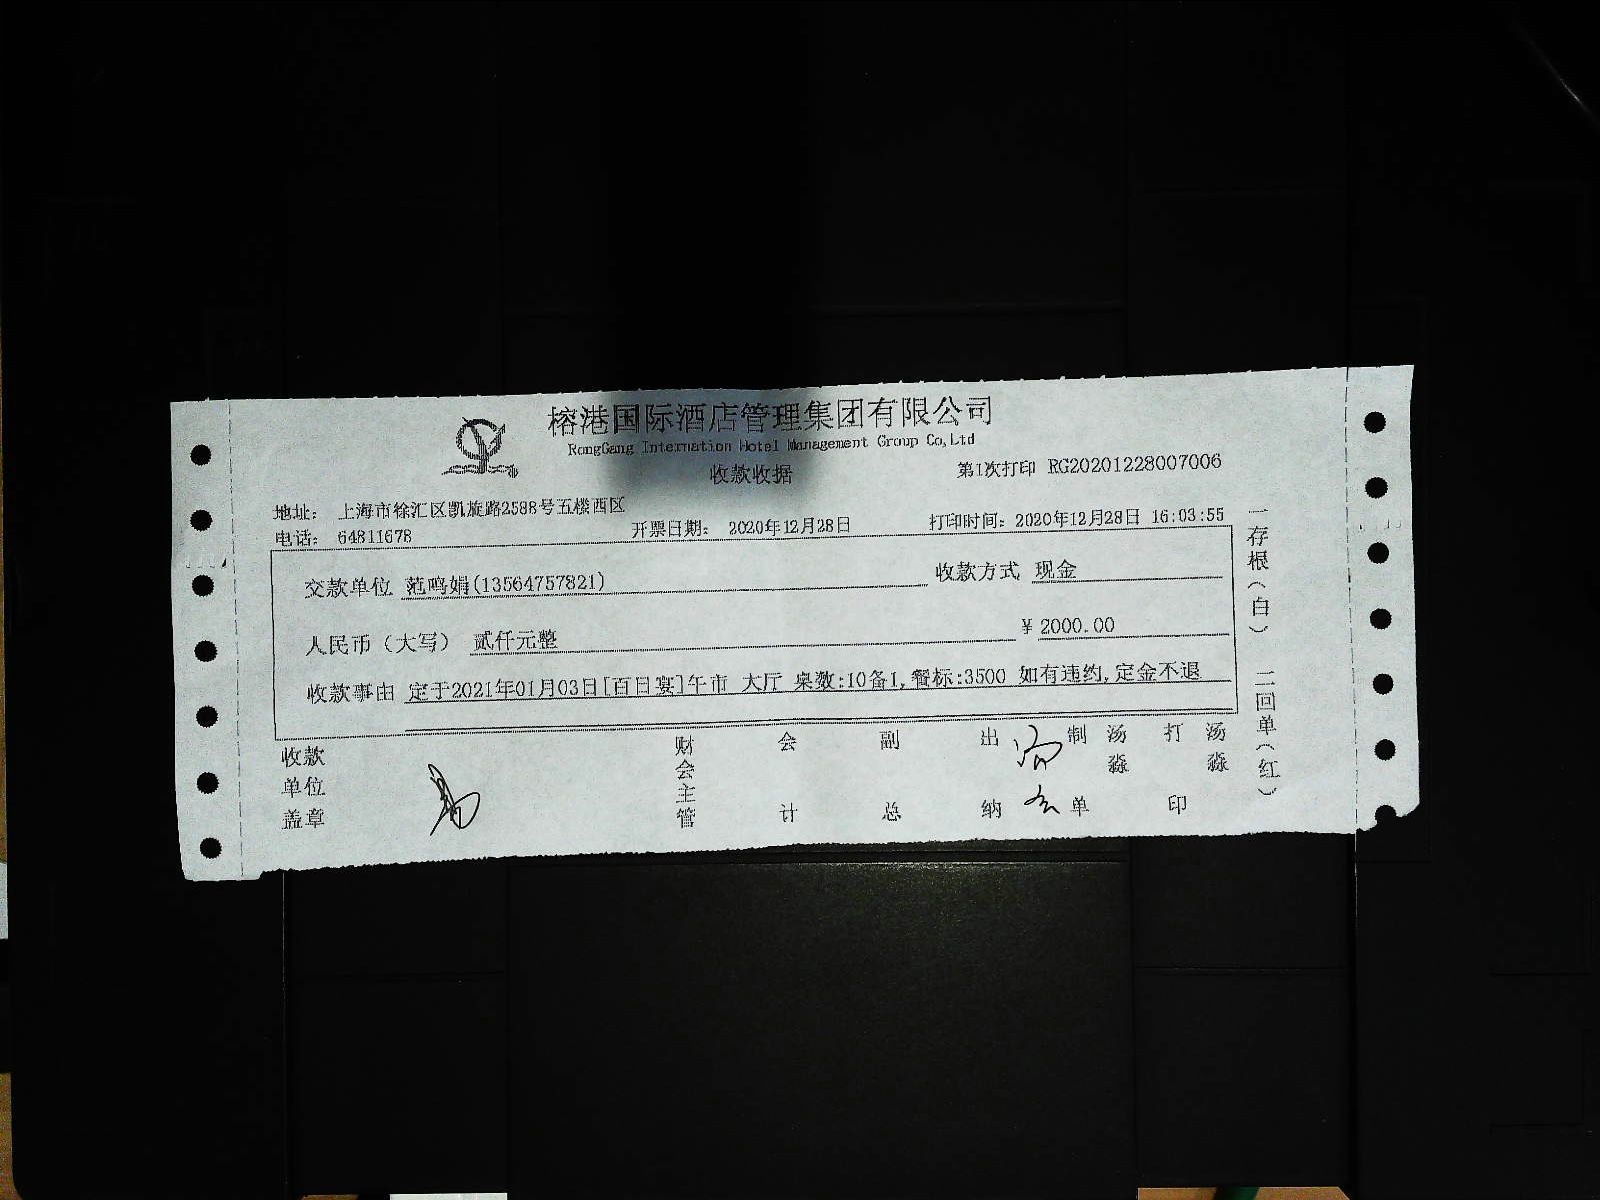 榕港国际酒店管理集团有限公司
RongGang Internation Hotel Management Group Co,Ltd
收款收据
第1次打印 RG20201228007006
地址： 上海市徐汇区凯旋路2588号五楼西区
电话： 64811678
开票日期： 2020年12月28日
打印时间：2020年12月28日 16:03:55
交款单位 范鸣娟(13564757821)
收款方式 现金
人民币（大写） 贰仟元整
¥ 2000.00
收款事由 定于2021年01月03日[百日宴]午市 大厅 桌数:10备1,餐标:3500 如有违约,定金不退
收款单位盖章
财会主管
会计
副总
出纳
制单
汤淼
打印
汤淼
一存根（白） 二回单（红）